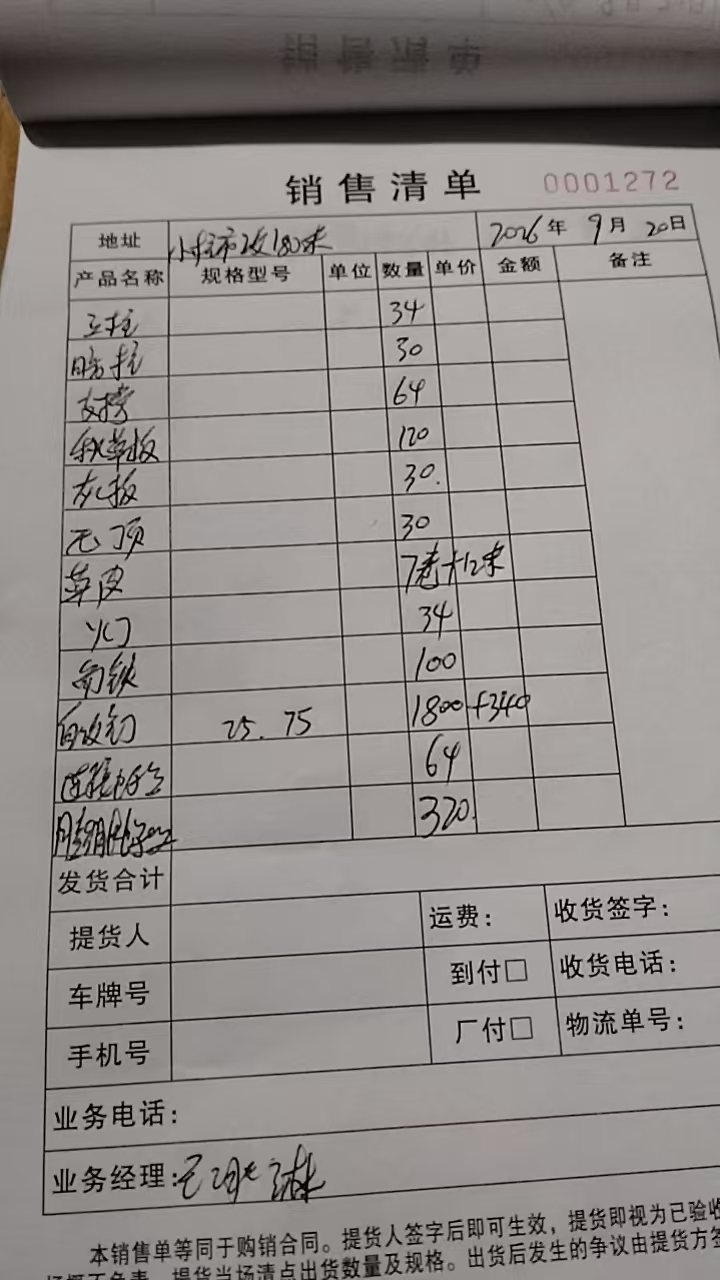 销售清单 0001272
地址 小柱市政180米 2026年9月20日
产品名称 规格型号 单位 数量 单价 金额 备注
立柱 34
暗柱 30
支撑 64
秋草板 120
灰板 30.
瓦顶 30
草皮 7卷+12米
34
角铁 100
自攻钉 25.75 1800+340
连接 64
膨胀 320.
发货合计
提货人 运费： 收货签字：
车牌号 到付□ 收货电话：
手机号 厂付□ 物流单号：
业务电话：
业务经理：
本销售单等同于购销合同。提货人签字后即可生效，提货即视为已验收
提货当场清点出货数量及规格。出货后发生的争议由提货方签